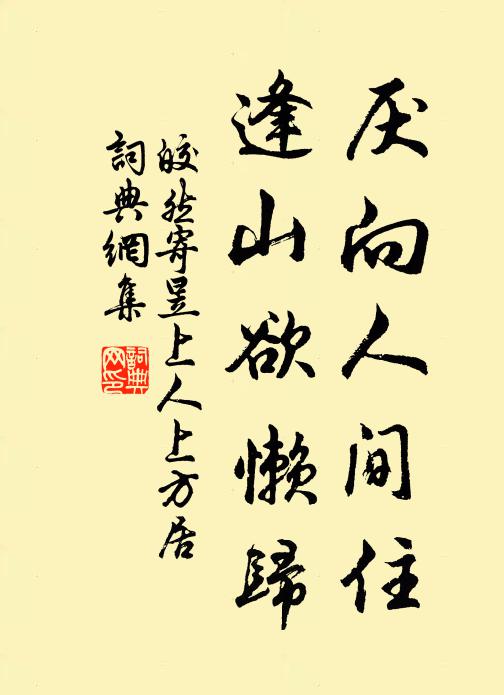 厌向人间住
逢山欲懒歸
皎然寄昱上人上方居
詞典網集
詞典
网印